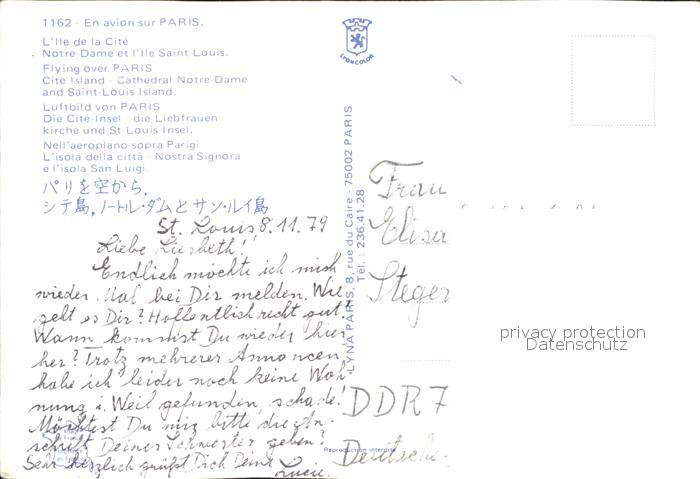 1162 - En avion sur PARIS.
L'Ile de la Cité
Notre-Dame et l'Ile Saint-Louis.
Flying over PARIS
Cite Island - Cathedral Notre-Dame
and Saint-Louis Island.
Luftbild von PARIS
Die Cité-Insel die Liebfrauen
kirche und St-Louis-Insel.
Nell'aeroplano sopra Parigi
L'isola della città - Nostra Signora
e l'isola San Luigi.
パリを空から.
シテ島,ノートル・ダムとサン・ルイ島
St. Louis 8.11.79
Liebe Liesbeth!
Endlich möchte ich mich
wieder Mal bei Dir melden. Wie
geht es Dir? Hoffentlich recht gut!
Wann kommst Du wieder hier
her? Trotz mehrerer Annoncen
habe ich leider noch keine Woh
nung i. Weil gefunden, schade!
Möchtest Du mir bitte die An-
schrift Deiner Schwester geben?
Sehr herzlich grüßt Dich Deine
Lucie.
LYONCOLOR
LYNA-PARIS, 8, rue du Caire - 75002 PARIS
Tél.: 236.41.28
Frau
Elisa
Steger
DDR 7
Deutsche
Reproduction interdite
privacy protection
Datenschutz